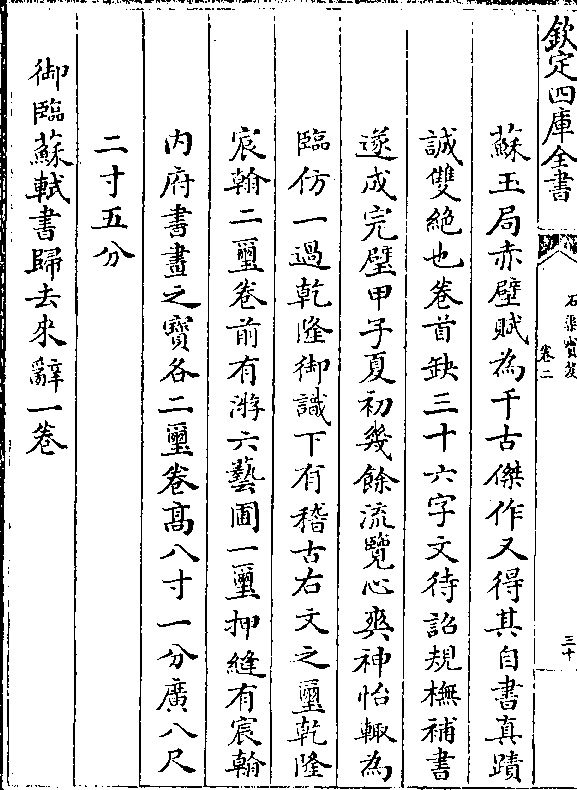 欽定四庫全書
石渠寶笈
卷二
三十
蘇玉局赤壁賦為千古傑作又得其自書真蹟
誠雙絶也卷首缺三十六字文待詔規橅補書
遂成完璧甲子夏初幾餘流覽心爽神怡輒為
臨仿一過乾隆御識下有稽古右文之璽乾隆
宸翰二璽卷前有游六藝圃一璽押縫有宸翰
内府書畫之寶各二璽卷髙八寸一分廣八尺
二寸五分
御臨蘇軾書歸去來辭一卷